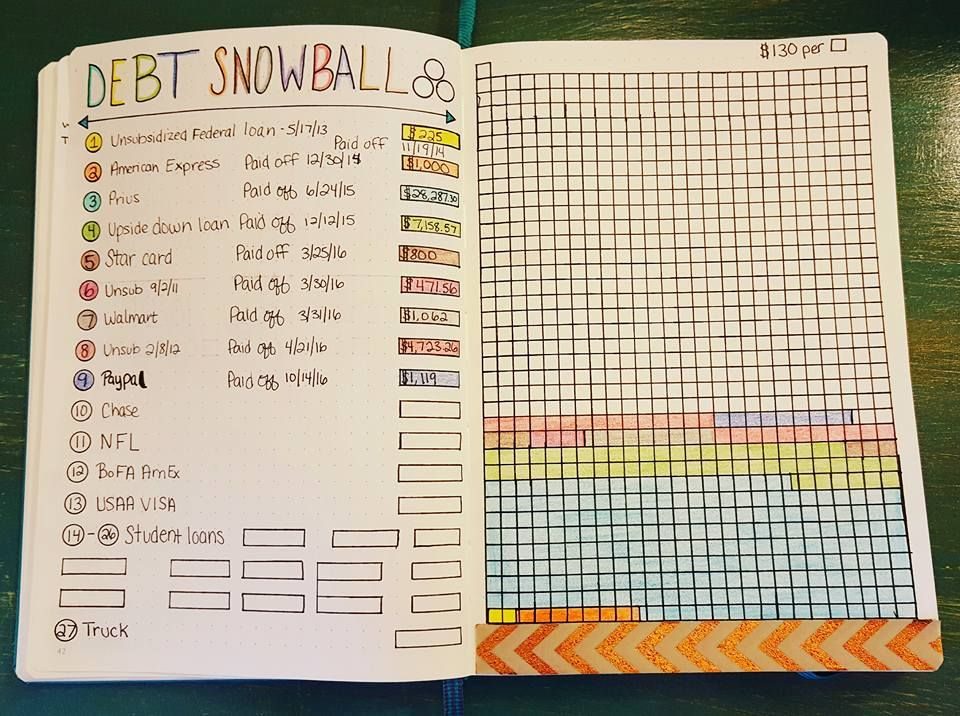 DEBT SNOWBALL
$130 per
W
T
1 Unsubsidized Federal loan - 5/17/13 Paid off 11/19/14 $225
2 American Express Paid off 12/30/14 $1,000
3 Prius Paid off 6/24/15 $28,287.30
4 Upside down loan Paid off 12/12/15 $7,158.57
5 Star card Paid off 3/25/16 $800
6 Unsub 9/2/11 Paid off 3/30/16 $471.56
7 Walmart Paid off 3/31/16 $1,062
8 Unsub 2/8/12 Paid off 4/21/16 $4,723.26
9 Paypal Paid off 10/14/16 $1,119
10 Chase
11 NFL
12 BoFA AmEx
13 USAA VISA
14 - 26 Student loans
27 Truck
42